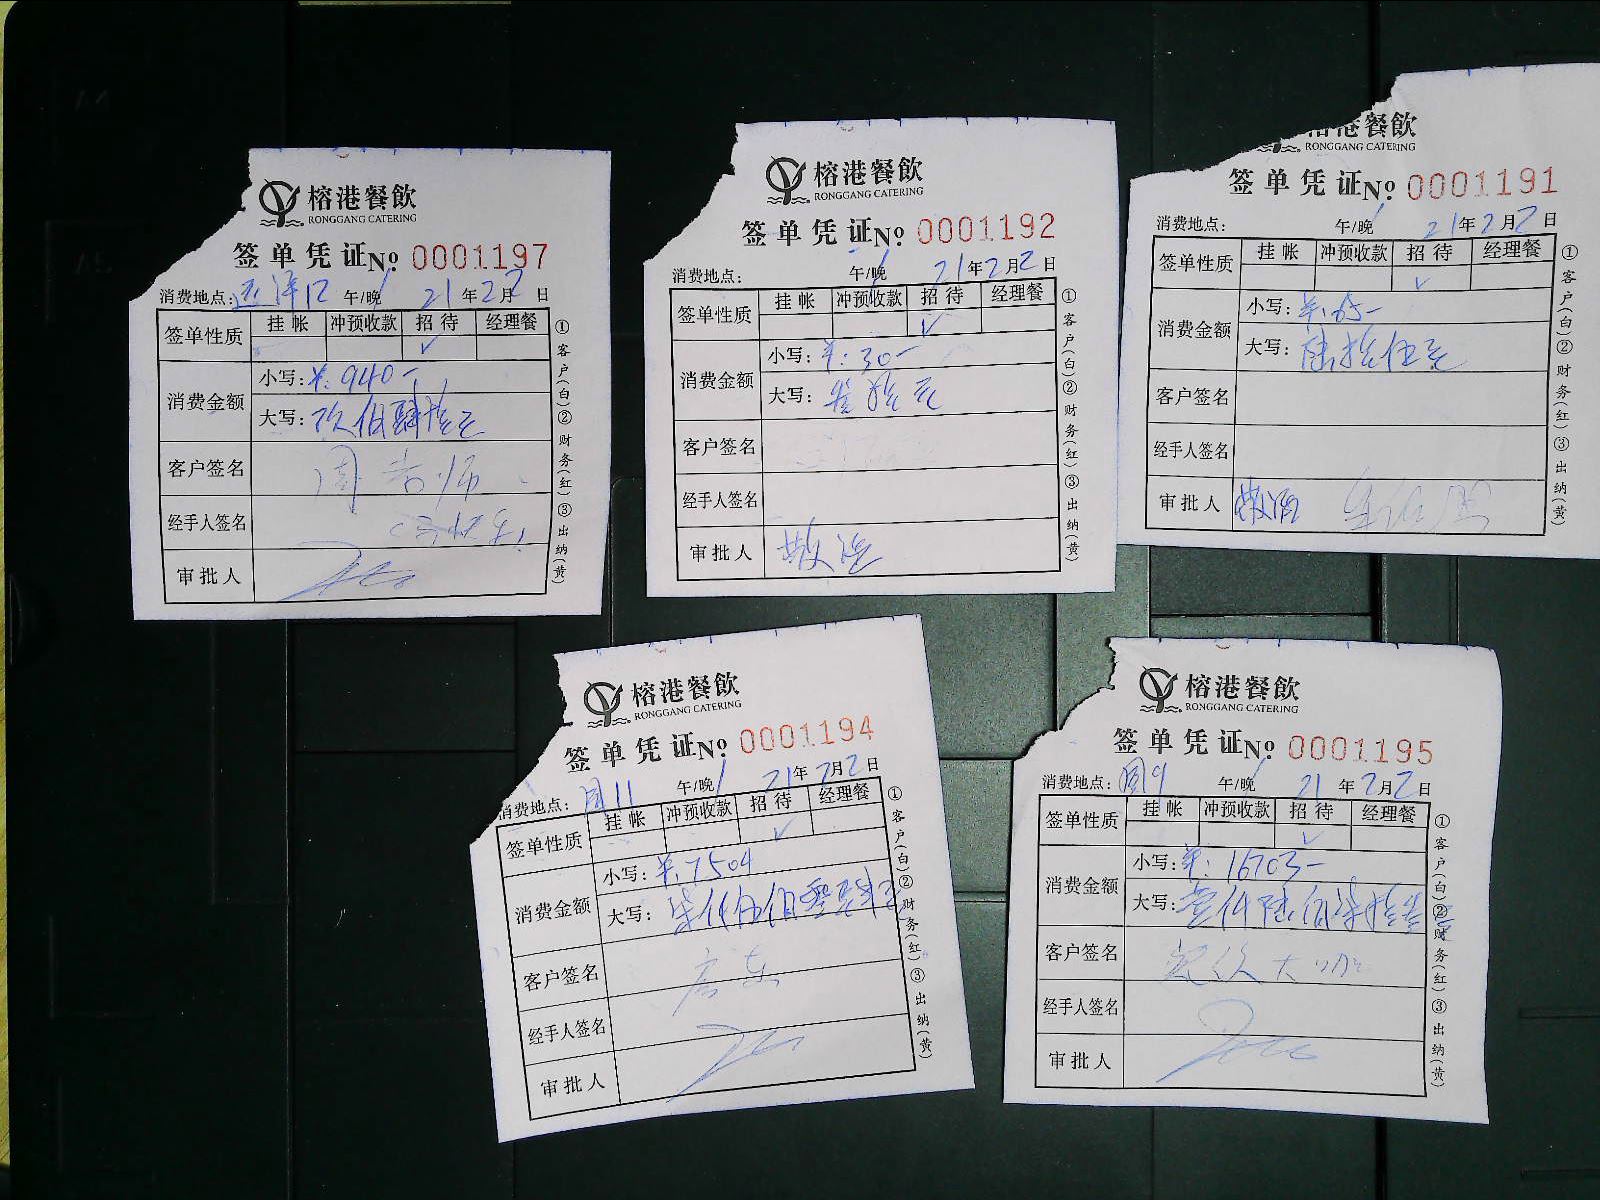 榕港餐飲
RONGGANG CATERING
签单凭证№ 0001197
消费地点: 午/晚 21年2月2日
签单性质 挂帐 冲预收款 招待 经理餐
✓
消费金额 小写: ¥:940-
大写: 玖佰肆拾元
客户签名 周
经手人签名
审批人
①客户(白)②财务(红)③出纳(黄)
榕港餐飲
RONGGANG CATERING
签单凭证№ 0001192
消费地点: 午/晚 21年2月2日
签单性质 挂帐 冲预收款 招待 经理餐
✓
消费金额 小写: ¥:30-
大写: 叁拾元
客户签名
经手人签名
审批人
①客户(白)②财务(红)③出纳(黄)
榕港餐飲
RONGGANG CATERING
签单凭证№ 0001191
消费地点: 午/晚 21年2月2日
签单性质 挂帐 冲预收款 招待 经理餐
✓
消费金额 小写: ¥:65-
大写: 陆拾伍元
客户签名
经手人签名
审批人
①客户(白)②财务(红)③出纳(黄)
榕港餐飲
RONGGANG CATERING
签单凭证№ 0001194
消费地点: 11 午/晚 21年2月2日
签单性质 挂帐 冲预收款 招待 经理餐
✓
消费金额 小写: ¥:7504
大写: 柒仟伍佰零
客户签名
经手人签名
审批人
①客户(白)②财务(红)③出纳(黄)
榕港餐飲
RONGGANG CATERING
签单凭证№ 0001195
消费地点: 9 午/晚 21年2月2日
签单性质 挂帐 冲预收款 招待 经理餐
✓
消费金额 小写: ¥:16703-
大写: 壹仟陆佰柒拾
客户签名
经手人签名
审批人
①客户(白)②财务(红)③出纳(黄)